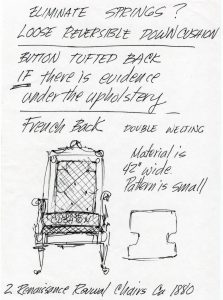 ELIMINATE SPRINGS?
LOOSE REVERSIBLE DOWN CUSHION
BUTTON TUFTED BACK
IF there is evidence
under the upholstery
French Back
DOUBLE WELTING
Material is
42" wide
Pattern is small
2 Renaissance Revival Chairs Ca 1880